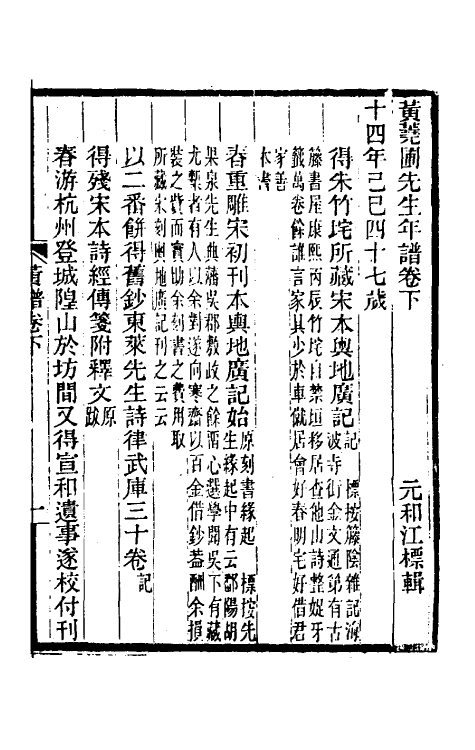 黃蕘圃先生年譜卷下
元和江標輯
十四年己巳四十七歲
得朱竹垞所藏宋本輿地廣記記 標按籐陰雜記海
波寺街金文通第有古
籐書屋康熙丙辰竹垞自禁垣移居查他山詩整娖牙
籤萬卷餘誰言家具少於車僦居會好春明宅好借君
家善
本書
春重雕宋初刊本輿地廣記始原刻書緣起 標按先
生緣起中有云鄱陽胡
果泉先生典藩吳郡敷政之餘畱心選學聞吳下有藏
尤槧者有人以余對遂向寒齋以百金借鈔葢酬余損
裝之費而實助余刻書之費用取
所藏宋刻輿地廣記刊之云云
以二番餅得舊鈔東萊先生詩律武庫三十卷記
得殘宋本詩經傳箋附釋文原
跋
春游杭州登城隍山於坊間又得宣和遺事遂校付刊
黃譜卷下
一